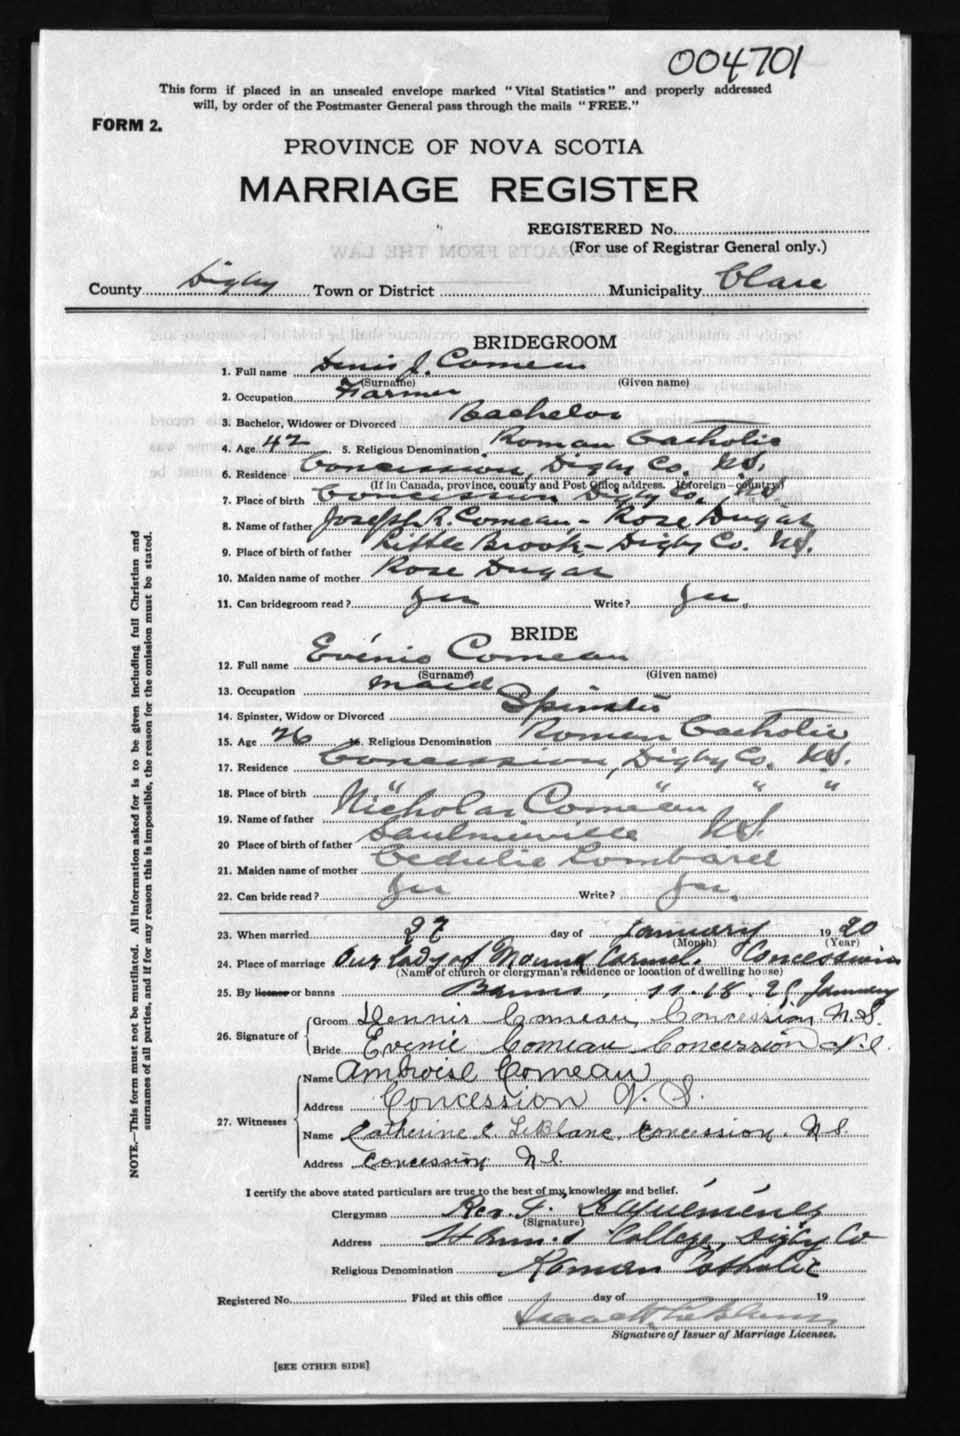 004701
This form if placed in an unsealed envelope marked "Vital Statistics" and properly addressed
will, by order of the Postmaster General pass through the mails "FREE."
FORM 2.
PROVINCE OF NOVA SCOTIA
MARRIAGE REGISTER
REGISTERED No.
(For use of Registrar General only.)
County Digby Town or District Municipality Clare
BRIDEGROOM
1. Full name Denis J. Comeau
(Surname) (Given name)
2. Occupation Farmer
3. Bachelor, Widower or Divorced Bachelor
4. Age 42 5. Religious Denomination Roman Catholic
6. Residence Concession, Digby Co. N.S.
(If in Canada, province, county and Post Office address. If foreign - country)
7. Place of birth Concession Digby Co., N.S.
8. Name of father Joseph R. Comeau - Rose Dugas
9. Place of birth of father Little Brook - Digby Co. N.S.
10. Maiden name of mother Rose Dugas
11. Can bridegroom read? Yes Write? Yes.
BRIDE
12. Full name Evénie Comeau
(Surname) (Given name)
13. Occupation Maid
14. Spinster, Widow or Divorced Spinster
15. Age 26 16. Religious Denomination Roman Catholic
17. Residence Concession, Digby Co. N.S.
18. Place of birth " " " "
19. Name of father Nicholas Comeau
20 Place of birth of father Saulnierville N.S.
21. Maiden name of mother Cedulie Lombard
22. Can bride read? Yes Write? Yes.
23. When married 27 day of January 1920
(Month) (Year)
24. Place of marriage Our Lady of Mount Carmel. Concession
(Name of church or clergyman's residence or location of dwelling house)
25. By license or banns Banns, 11. 18. 25 January
26. Signature of Groom Dennis Comeau, Concession N.S.
Bride Evenie Comeau Concession N.S.
27. Witnesses Name Ambroise Comeau
Address Concession N.S.
Name Catherine C. LeBlanc, Concession, N.S.
Address Concession N.S.
I certify the above stated particulars are true to the best of my knowledge and belief.
Clergyman Rev. J.
(Signature)
Address St Ann.s College, Digby Co
Religious Denomination Roman Catholic
Registered No. Filed at this office day of 19
LeBlanc
Signature of Issuer of Marriage Licenses.
[SEE OTHER SIDE]
NOTE.—This form must not be mutilated. All information asked for is to be given including full Christian and
surnames of all parties, and if for any reason this is impossible, the reason for the omission must be stated.